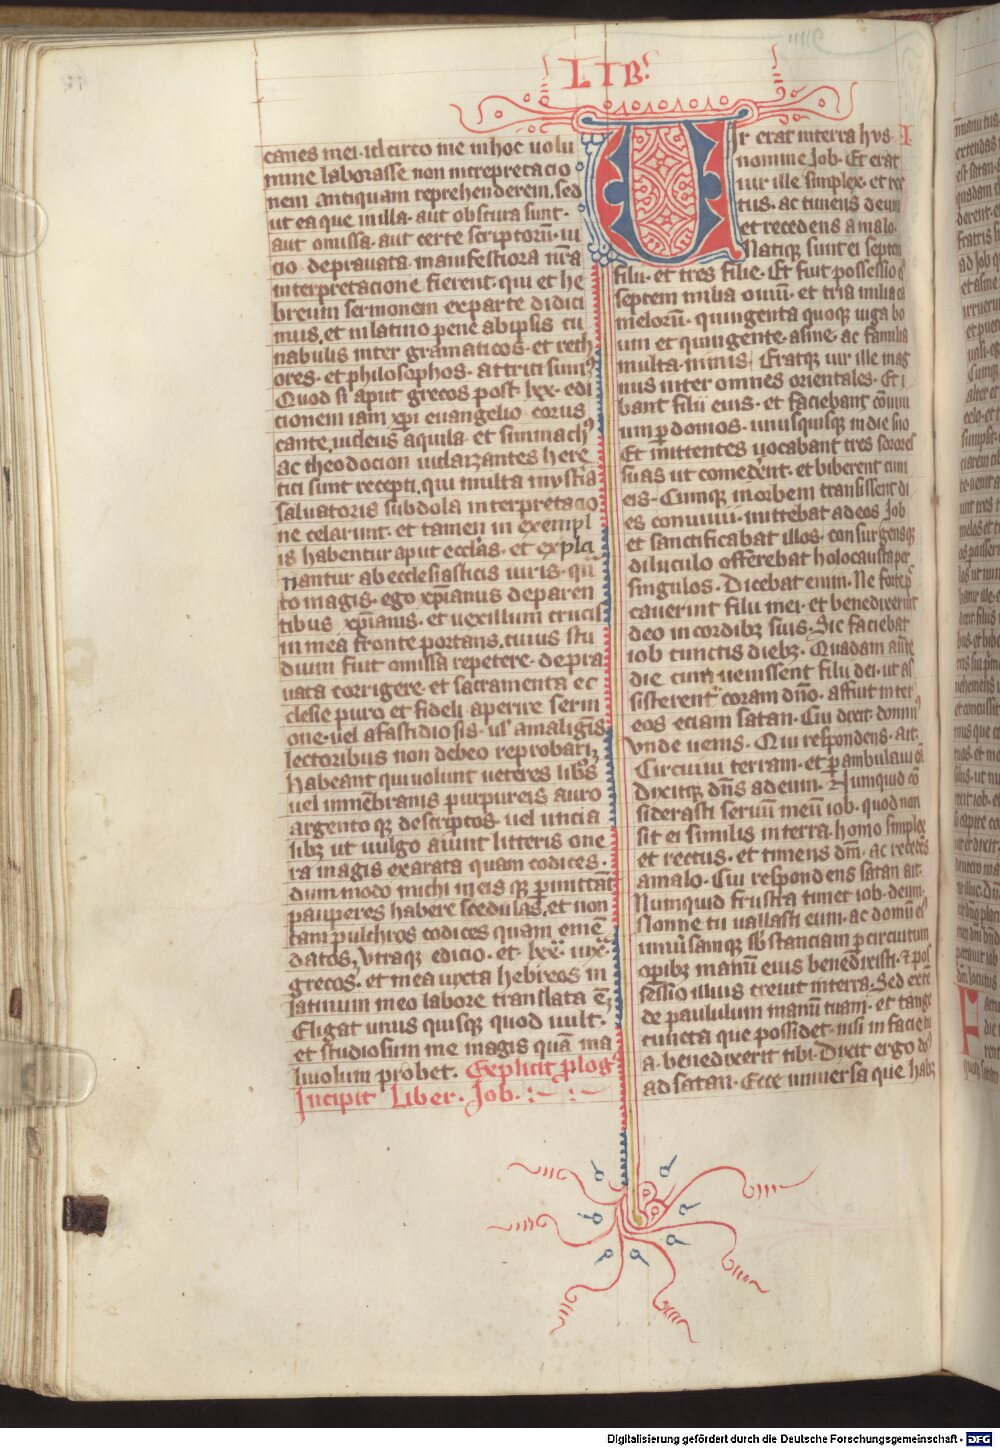 LIB'
canes mei· idcirco me in hoc uolu
mine laborasse non intrepretacio
nem antiquam reprehenderem. sed
ut ea que in illa· aut obscura sunt·
aut omissa· aut certe scriptorū· ui
cio deprauata· manifestiora nr̄a
interpretacione fierent· qui et he
breum sermonem ex parte didici
mus, et in latino pene ab ipsis cu
nabulis inter gramaticos· et reth
ores· et philosophos· attriti sumꝰ
Quod si aput grecos post· lxx· edi
cionem iam xp̄i euangelio corus
cante, iudeus aquila· et simmachꝰ
ac theodocion iudaizantes here
tici sunt recepti, qui multa mysteria
saluatoris subdola interpretacio
ne celarunt· et tamen in exempl
is habentur aput eccl'as· et expla
nantur ab ecclesiasticis uiris· quā
to magis· ego xp̄ianus de paren
tibus xp̄ianis· et uexillum crucis
in mea fronte portans, cuius stu
dium fuit omissa repetere· depra
uata corrigere· et sacramenta ec
clesie puro et fideli aperire serm
one· uel a fastidiosis· ul' a maligīs
lectoribus non debeo reprobari,
Habeant qui uolunt ueteres lib'os
uel in mēbranis purpureis auro
argentoqꝫ descriptos· uel uncia
libꝫ ut uulgo aiunt litteris one
ra magis exarata quam codices·
dum modo michi meisqꝫ ꝑmittāt
pauperes habere scedulas, et non
tam pulchros codices quam emē
datos, Vtraqꝫ edicio· et lxx· iuxͣ
grecos· et mea iuxta hebreos in
latinum meo labore translata ē,
Eligat unus quisqꝫ quod uult·
et studiosum me magis quā ma
liuolum probet. Explicit plog'
Incipit Liber· Job.
I
Vir erat in terra hus·
nomine Job· Et erat
uir ille simplex· et rec
tus· ac timens deum
et recedens a malo·
Natiqꝫ sunt ei septem
filii· et tres filie· Et fuit possessio eiꝰ
septem milia ouiū· et tria milia ca
melorū· quingenta quoqꝫ iuga bo
um et quingente· asine· ac familia
multa· nimis· Eratqꝫ uir ille mag
nus inter omnes orientales· Et i
bant filii eius· et faciebant cōuiui
um ꝑ domos· unusquisqꝫ in die suo
Et mittentes uocabant tres sorores
suas ut comederent· et biberent cum
eis· Cumqꝫ in orbem transissent di
es conuiuii· mittebat ad eos Job
et sanctificabat illos· consurgensqꝫ
diluculo offerebat holocausta per
singulos· Dicebat enim· Ne forte p
cauerint filii mei· et benedixerint
deo in cordibꝫ suis· Sic faciebat
iob cunctis diebꝫ· Quadam autē
die cum uenissent filii dei· ut as
sisterent coram dn̄o· affuit inter
eos eciam satan· Cui dixit dominꝰ
Vnde uenis· Qui respondens· ait·
Circuiui terram· et ꝑambulaui eā
Dixitqꝫ dn̄s ad eum· Numquid cō
siderasti seruū meū iob· quod non
sit ei similis in terra· homo simplex
et rectus· et timens dm̄· ac recedēs
a malo· Cui respondens satan ait·
Numquid frustra timet iob· deum·
Nonne tu uallasti eum· ac domū eiꝰ
uniuersamqꝫ sb'stanciam ꝑ circuitum
opibꝫ manū eius benedixisti· et pos
sessio illius creuit in terra· Sed extē
de paululum manū tuam· et tange
cuncta que possidet· nisi in facie tu
a· benedixerit tibi· Dixit ergo dn̄s
ad satan· Ecce uniuersa que habꝫ
Digitalisierung gefördert durch die Deutsche Forschungsgemeinschaft - DFG